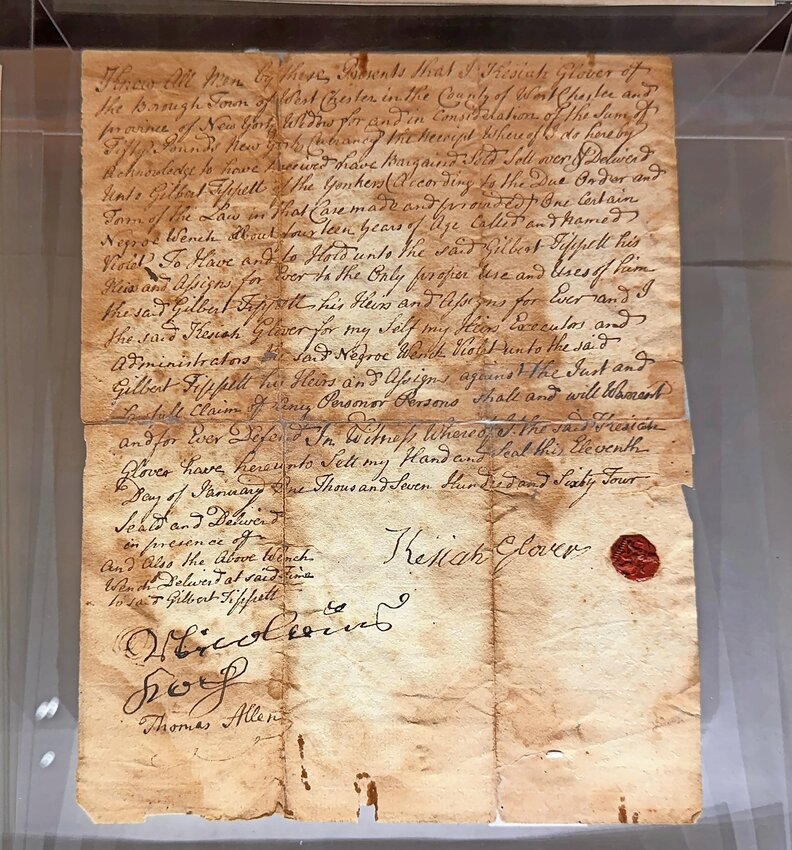 Know All Men by these Presents that I Kesiah Glover of
the Borough Town of West Chester in the County of West Chester and
province of New York Widow for and in Consideration of the Sum of
Fifty Pounds New York Currancy the Receipt Whereof I do hereby
Acknowledge to have Received have Bargaind Sold Sett over & Deliverd
Unto Gilbert Tippett of the Yonkers (According to the Due Order and
Form of the Law in that Case made and provided) One Certain
Negroe Wench about fourteen years of Age Called and Named
Violet To Have and to Hold unto the said Gilbert Tippett his
Heirs and Assigns for Ever to the Only proper Use and Uses of him
the said Gilbert Tippett his Heirs and Assigns for Ever and I
the said Kesiah Glover for my Self my Heirs Executors and
Administrators the said Negroe Wench Violet unto the said
Gilbert Tippett his Heirs and Assigns against the Just and
Claim of any Person or Persons shall and will Warrant
and for Ever Defend In Witness Whereof I the said Kesiah
Glover have hereunto Sett my Hand and Seal this Eleventh
Day of January One Thousand Seven Hundred and Sixty Four
Seald and Deliverd
in presence of
and Also the Above Wench
Wench Deliverd at said time
to said Gilbert Tippett
Kesiah Glover
Thomas Allen